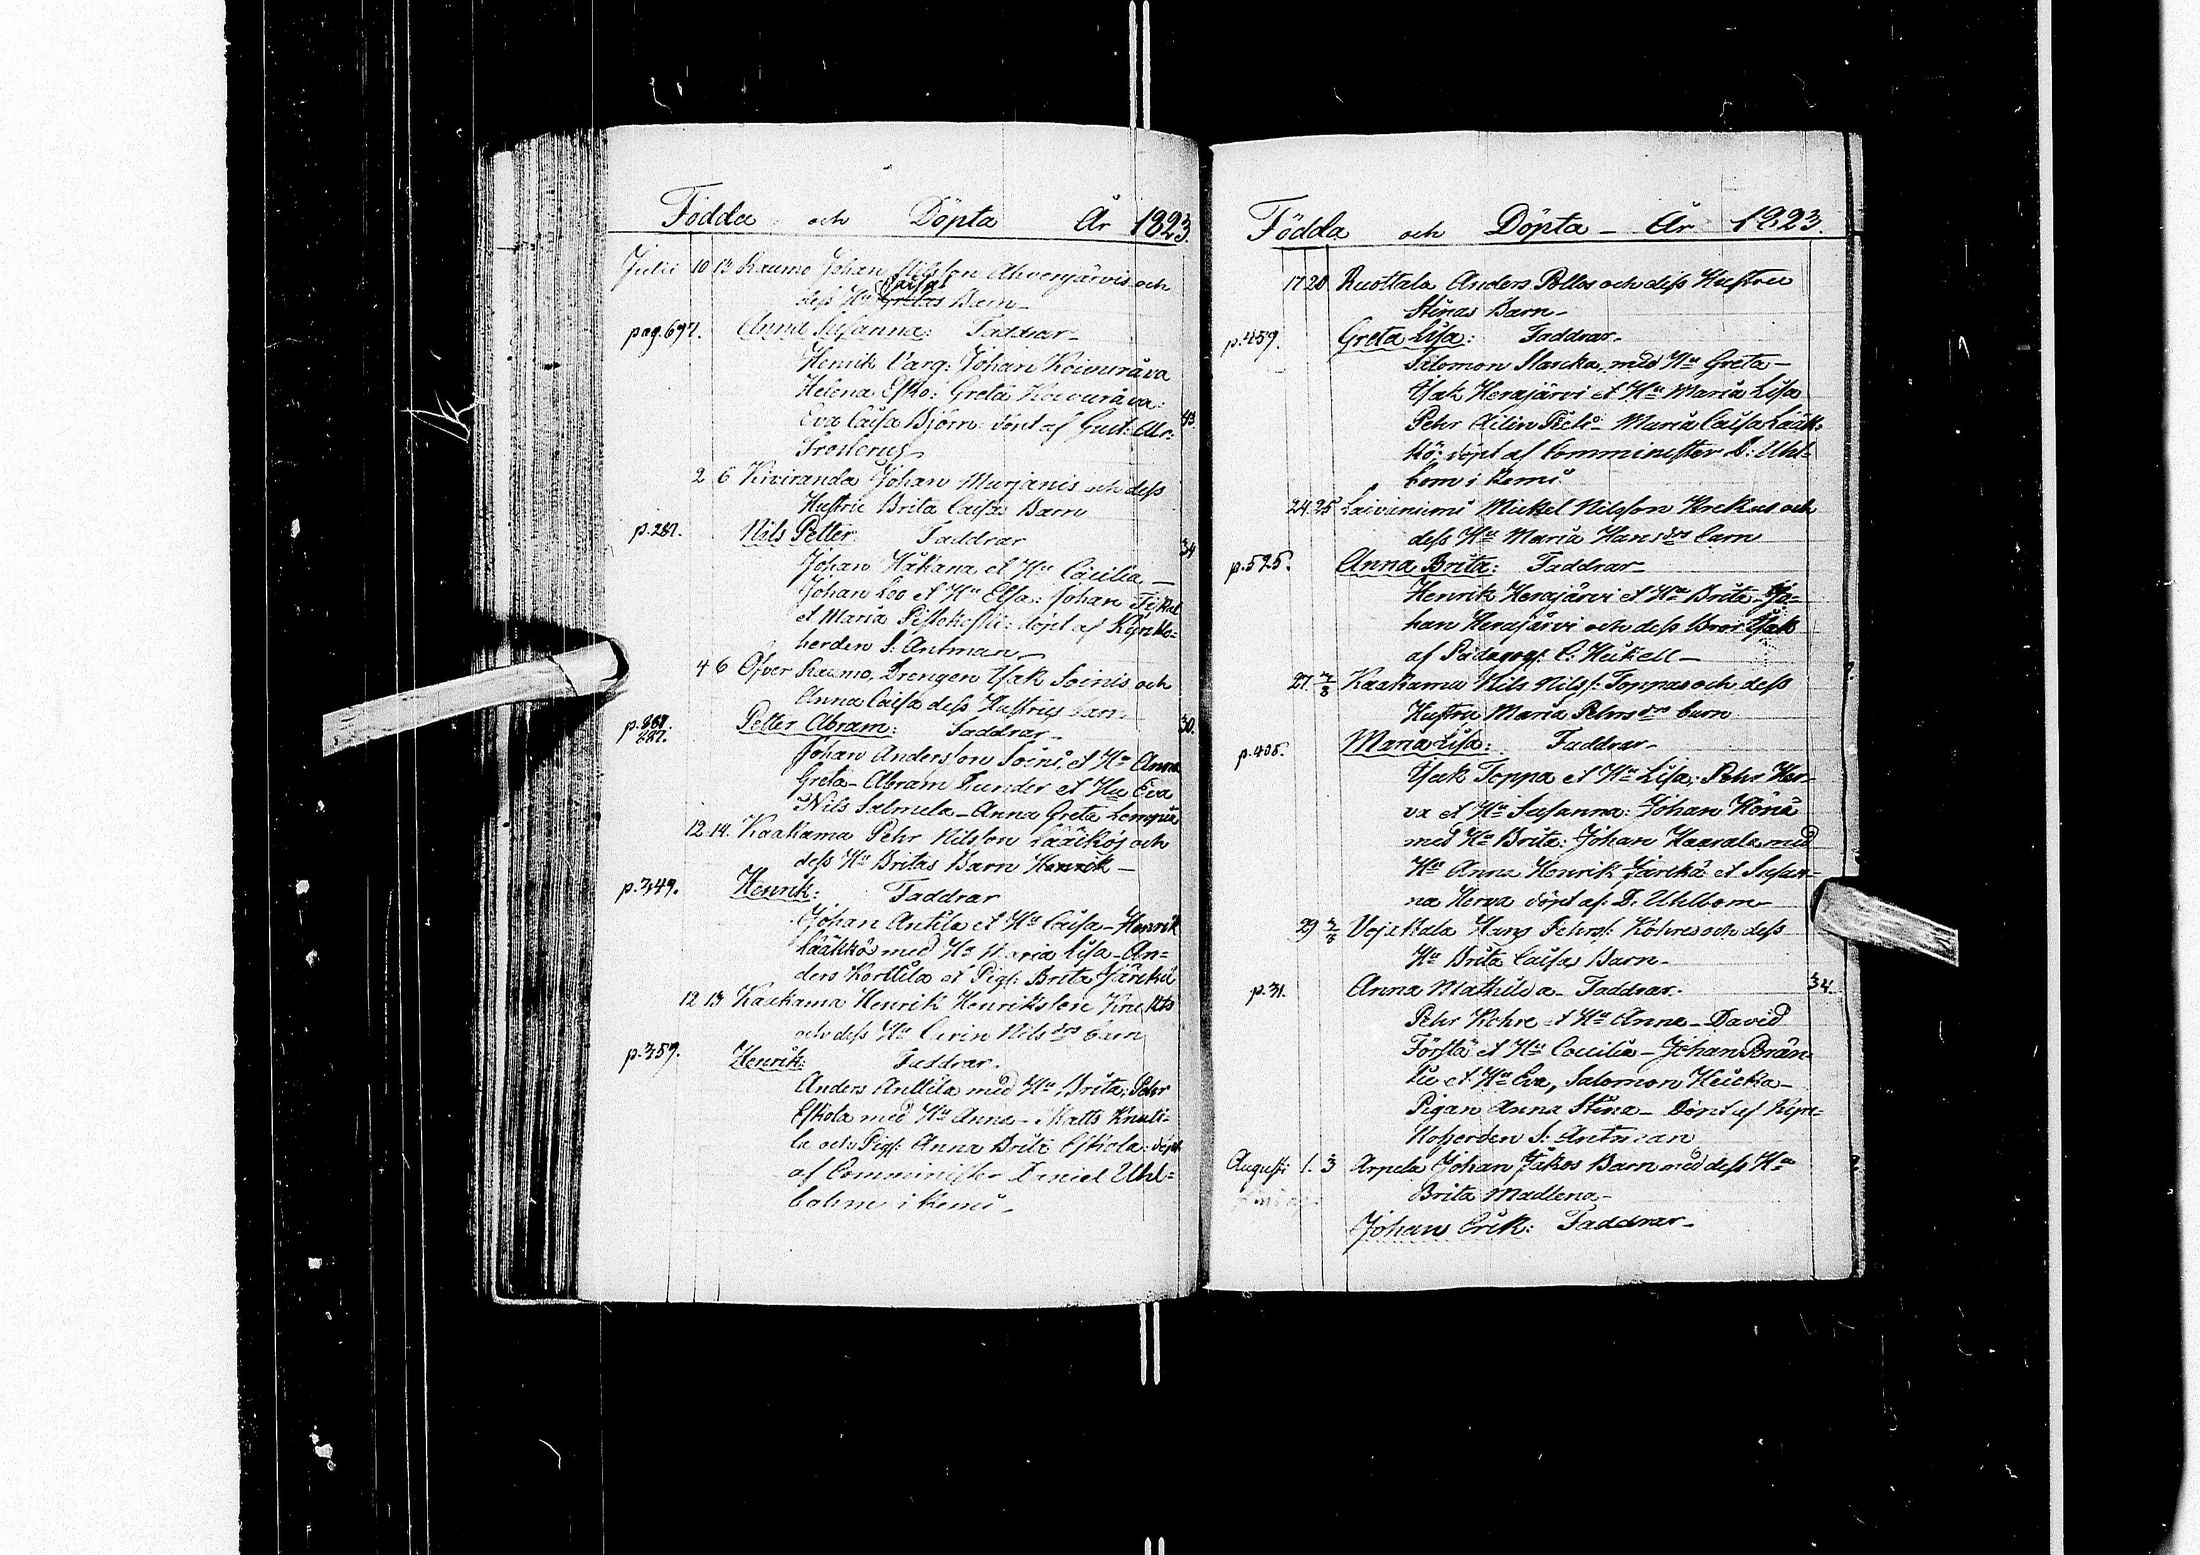 Födda och Döpta År 1823.
Julii 10 13 Raumo Johan Nilsson Ahvenjärvis och
dess Hu Caisas Gretas Barn
pag. 697. Anna Susanna: Faddrar
Henrik Varg: Johan Koivuråva
Helena Esko: Greta Koivuråva:
Eva Caisa Björn: döpt af Gust: Adr: 43.
2 6 Kiviranda Johan Murjanis och dess
Hustru Brita Caisas Barn
p. 287. Nils Petter. Faddrar 34
Johan Håkana et Hu Cäcilia
Johan Loo et Hu Elsa: Johan
et Maria döpt af Kyrko-
herden J: Antman
4 6 Öfver Raumo, Drengen Isak Soinis och
Anna Caisa dess Hustrus barn
p. 887. 30.
Petter Abram: Faddrar
Johan Andersson Soini, et Hu Anna
Greta Abram Tunder et Hu Eva
Nils Salmela Anna Greta
12. 14. Kaakama Pehr Nilsson Lääkkös och
dess Hu Britas Barn Henrik
p. 349. Henrik: Faddrar
Johan Antila et Hu Caisa Henrik
Lääkkö med Hu Maria Lisa An-
ders Korttila et Pig: Brita Järikä
12 13 Kaakama Henrik Henriksson
och dess Hu Carin Nilsdrs barn
p. 359. Henrik: Faddrar.
Anders Anttila med Hu Brita, Pehr
Eskola med Hu Anna Matts Knuti-
la och Pig: Anna Brita Eskola: döpt
af Comminister Daniel Uhl-
bohm i Kemi
Födda och Döpta År 1823.
17 20 Ruottala Anders Pollas och dess Hustru
Stinas Barn
p. 459. Greta Lisa: Faddrar.
Salomon med Hu Greta
Isak Herajärvi et Hu Maria Lisa
Pehr Maria Caisa Lääk-
kö: döpt af Comminister D: Uhl-
bom i Kemi
24 25 Laivaniemi Mickel Nilsson och
dess Hu Maria Hansdrs barn
p. 525. Anna Brita: Faddrar
Henrik Herajärvi et Hu Brita Jo-
han Herajärvi och dess Bror Isak
af Pädagog:
27 3/8 Kaakama Nils Nilss: Toppas och dess
Hustru Maria Pehrsdrs barn
p. 405. Maria Lisa: Faddrar
Isak Toppa et Hu Lisa: Pehr Her-
va et Hu Susanna: Johan
med Hu Brita: Johan Haarala med
Hu Anna Henrik Järikä et Susan-
na Herva döpt af: D: Uhlbom
29 3/8 Vojakala Hans Pehrss: Kohres och dess
Hu Brita Caisas Barn
p. 31. Anna Mathilda Faddrar. 34.
Pehr Kohre et Hu Anna David
Förstä et Hu Caecilia Johan Brän-
et Hu Eva, Salomon
Pigan Anna Stina Döpt af Kyr-
koherden J: Antman
Augusti 1. 3 Arpela Johan Jakos Barn med dess Hu
Brita Madlena
Johan Erik: Faddrar